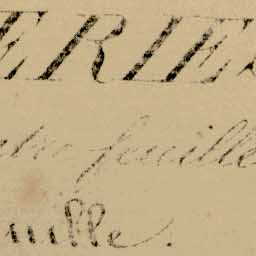 ERIE
tre feuille
uille.